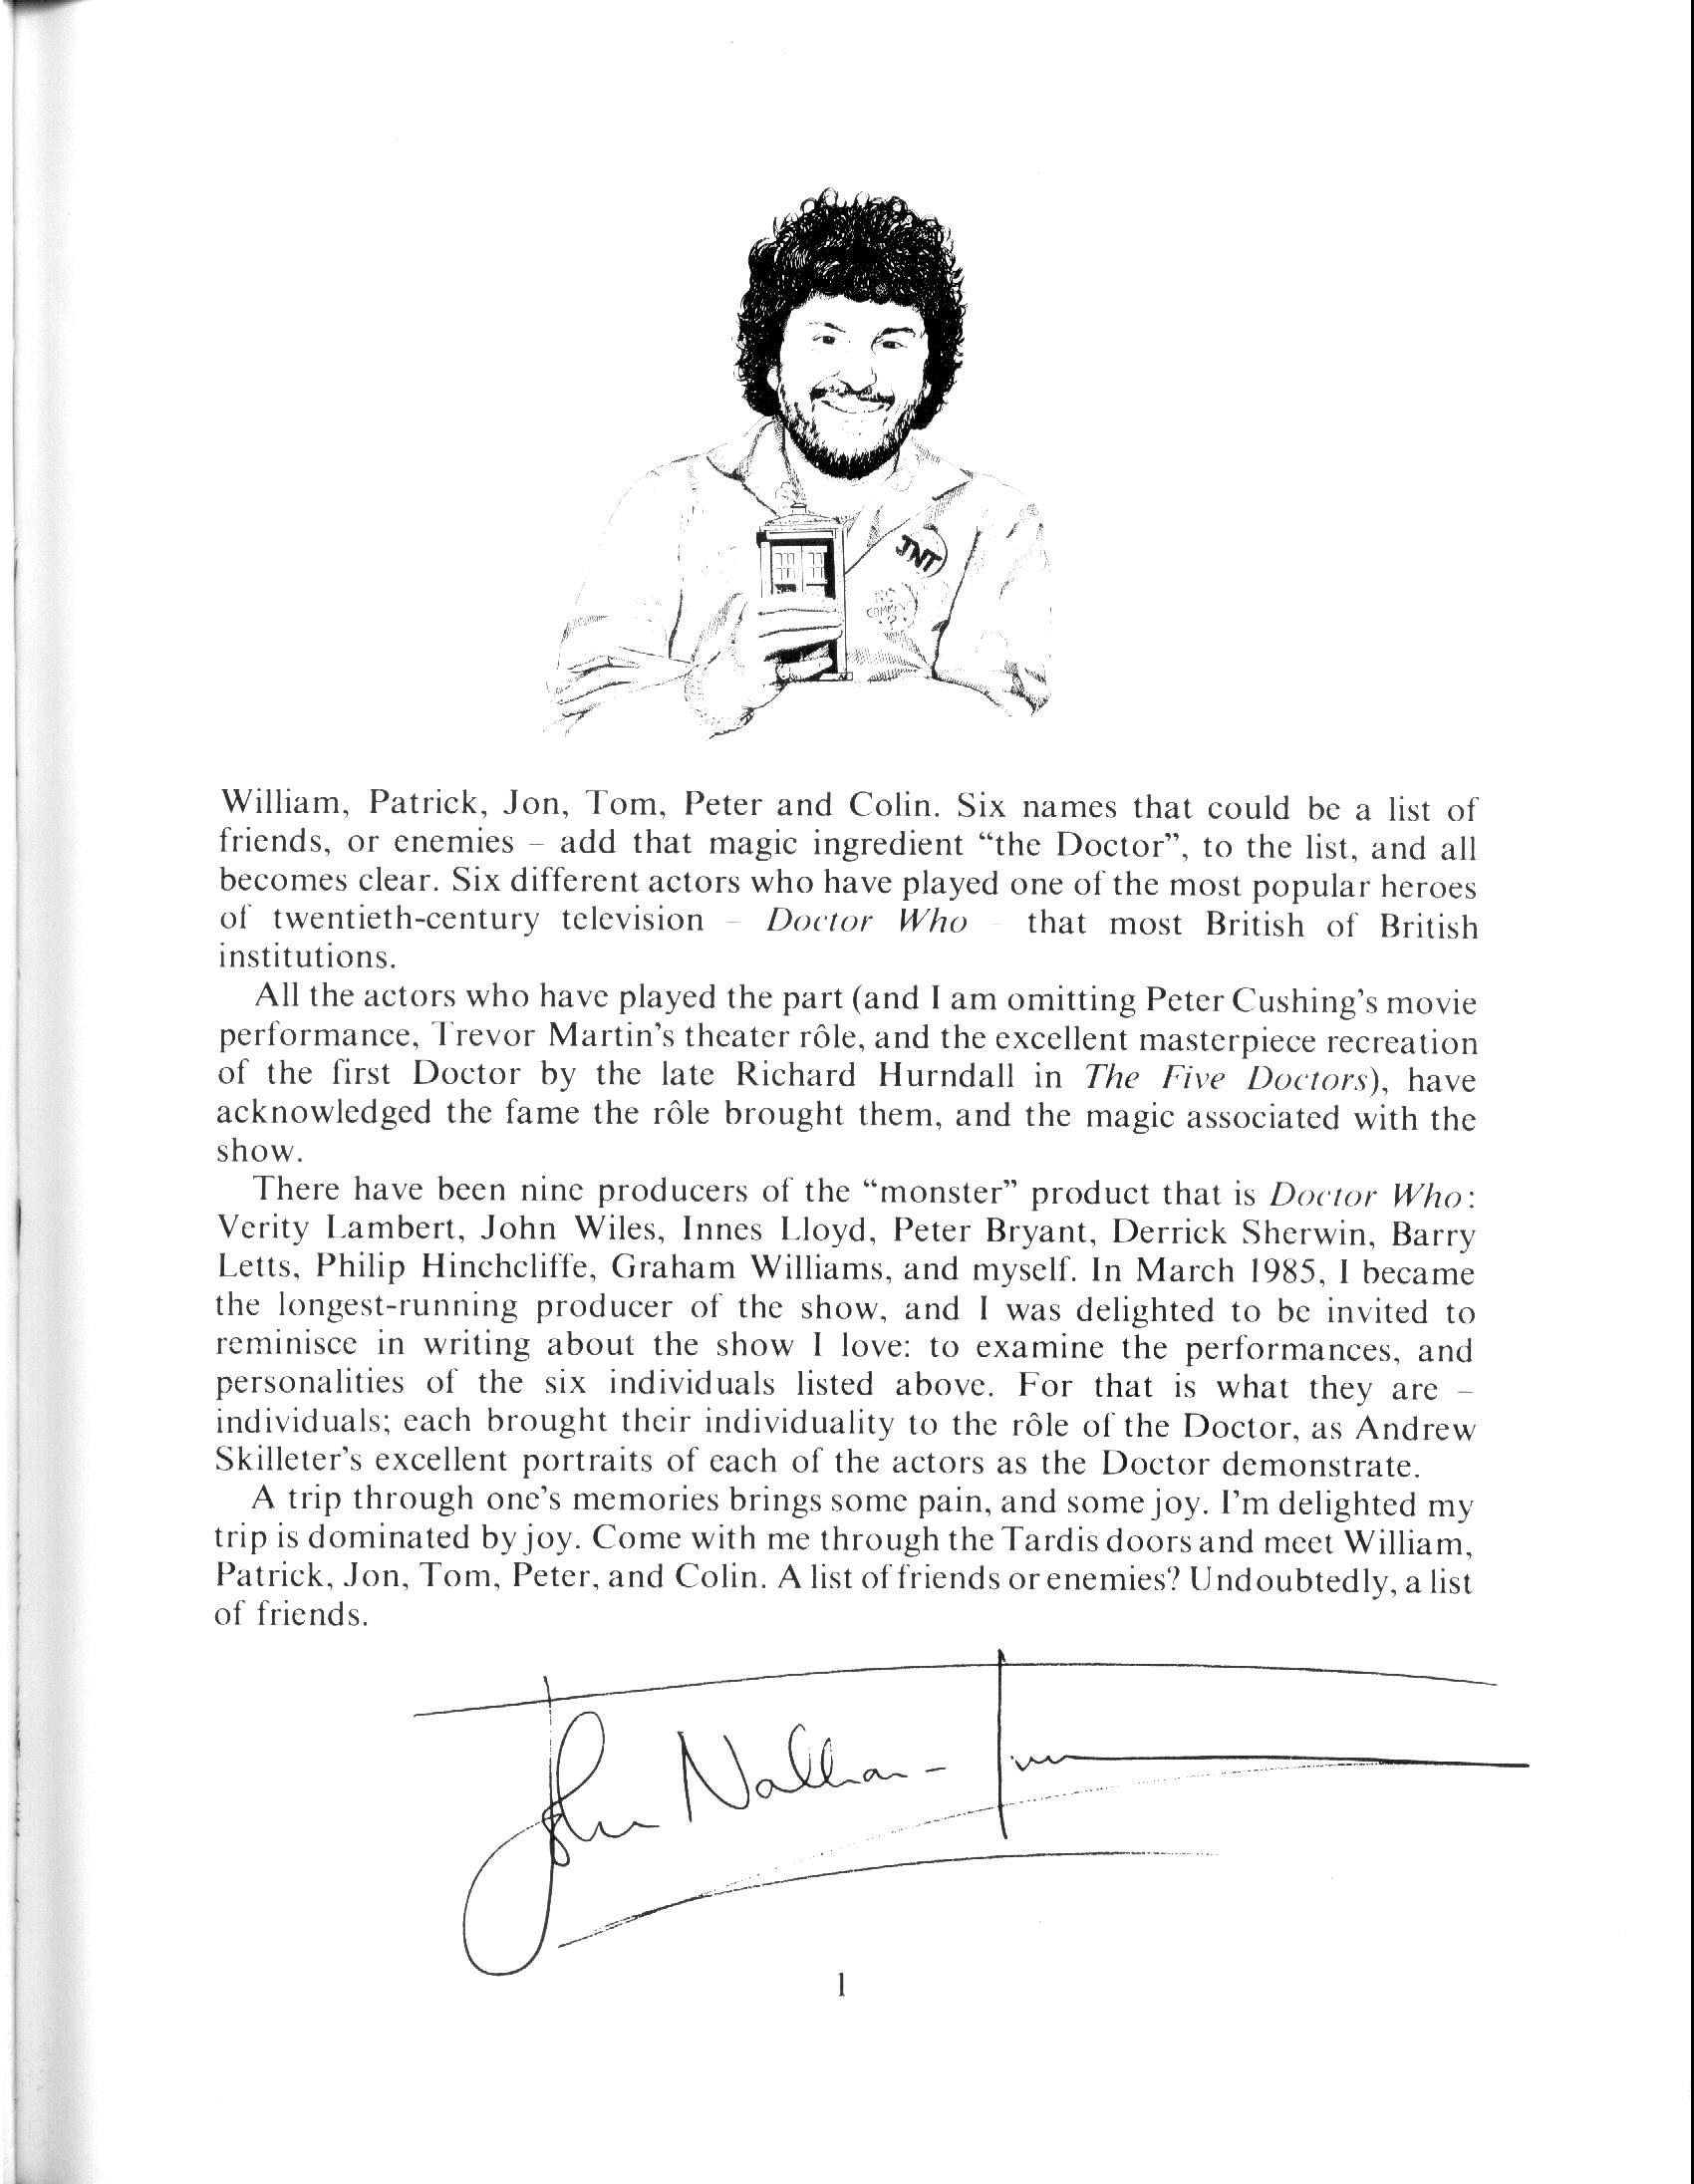 JNT
NO
COMMENT
?
William, Patrick, Jon, Tom, Peter and Colin. Six names that could be a list of
friends, or enemies – add that magic ingredient “the Doctor”, to the list, and all
becomes clear. Six different actors who have played one of the most popular heroes
of twentieth-century television – Doctor Who – that most British of British
institutions.
All the actors who have played the part (and I am omitting Peter Cushing's movie
performance, Trevor Martin's theater rôle, and the excellent masterpiece recreation
of the first Doctor by the late Richard Hurndall in The Five Doctors), have
acknowledged the fame the rôle brought them, and the magic associated with the
show.
There have been nine producers of the “monster” product that is Doctor Who:
Verity Lambert, John Wiles, Innes Lloyd, Peter Bryant, Derrick Sherwin, Barry
Letts, Philip Hinchcliffe, Graham Williams, and myself. In March 1985, I became
the longest-running producer of the show, and I was delighted to be invited to
reminisce in writing about the show I love: to examine the performances, and
personalities of the six individuals listed above. For that is what they are –
individuals; each brought their individuality to the rôle of the Doctor, as Andrew
Skilleter's excellent portraits of each of the actors as the Doctor demonstrate.
A trip through one's memories brings some pain, and some joy. I'm delighted my
trip is dominated by joy. Come with me through the Tardis doors and meet William,
Patrick, Jon, Tom, Peter, and Colin. A list of friends or enemies? Undoubtedly, a list
of friends.
John Nathan-Turner
1